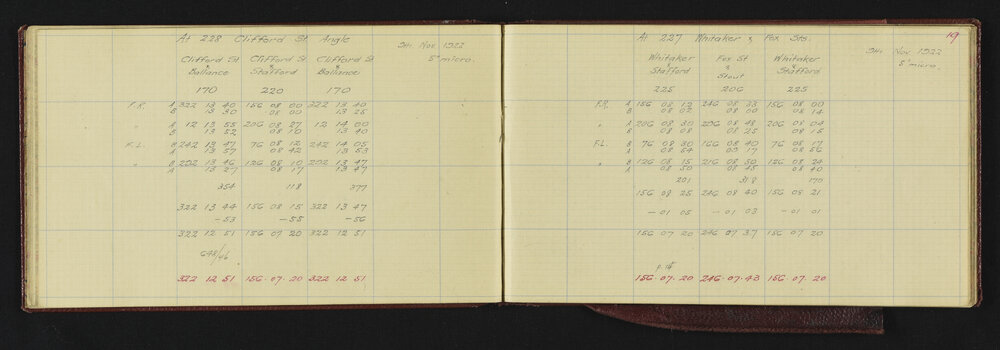 At 228 Clifford St Angle
9th Nov 1922
5" micro.
Clifford St x Ballance Clifford St x Stafford Clifford St x Ballance
170 220 170
F.R. A 322 13 40 156 08 00 322 13 40
B 13 30 08 00 13 28
" A 12 13 55 206 08 27 12 14 00
B 13 52 08 10 13 40
F.L. B 242 13 47 76 08 12 242 14 05
A 13 57 08 42 13 53
" B 292 13 46 126 08 10 292 13 47
A 13 27 08 17 13 47
354 118 377
322 13 44 156 08 15 322 13 47
-53 -55 -56
322 12 51 156 07 20 322 12 51
322 12 51 156.07.20 322 12 51
19
At 227 Whitaker x Fox Sts.
9th Nov 1922
5" micro.
Whitaker x Stafford Fox St x Stout Whitaker x Stafford
225 206 225
F.R. A 156 08 12 246 08 33 156 08 00
B 08 02 08 00 08 14
" A 206 08 30 296 08 48 206 08 04
B 08 08 08 25 08 15
F.L. B 76 08 30 166 08 40 76 08 17
A 08 54 09 17 08 56
" B 126 08 15 216 08 50 126 08 24
A 08 50 08 45 08 40
201 318 170
156 08 25 246 08 40 156 08 21
-01 05 -01 03 -01 01
156 07 20 246 07 37 156 07 20
156.07.20 246.07.43 156.07.20